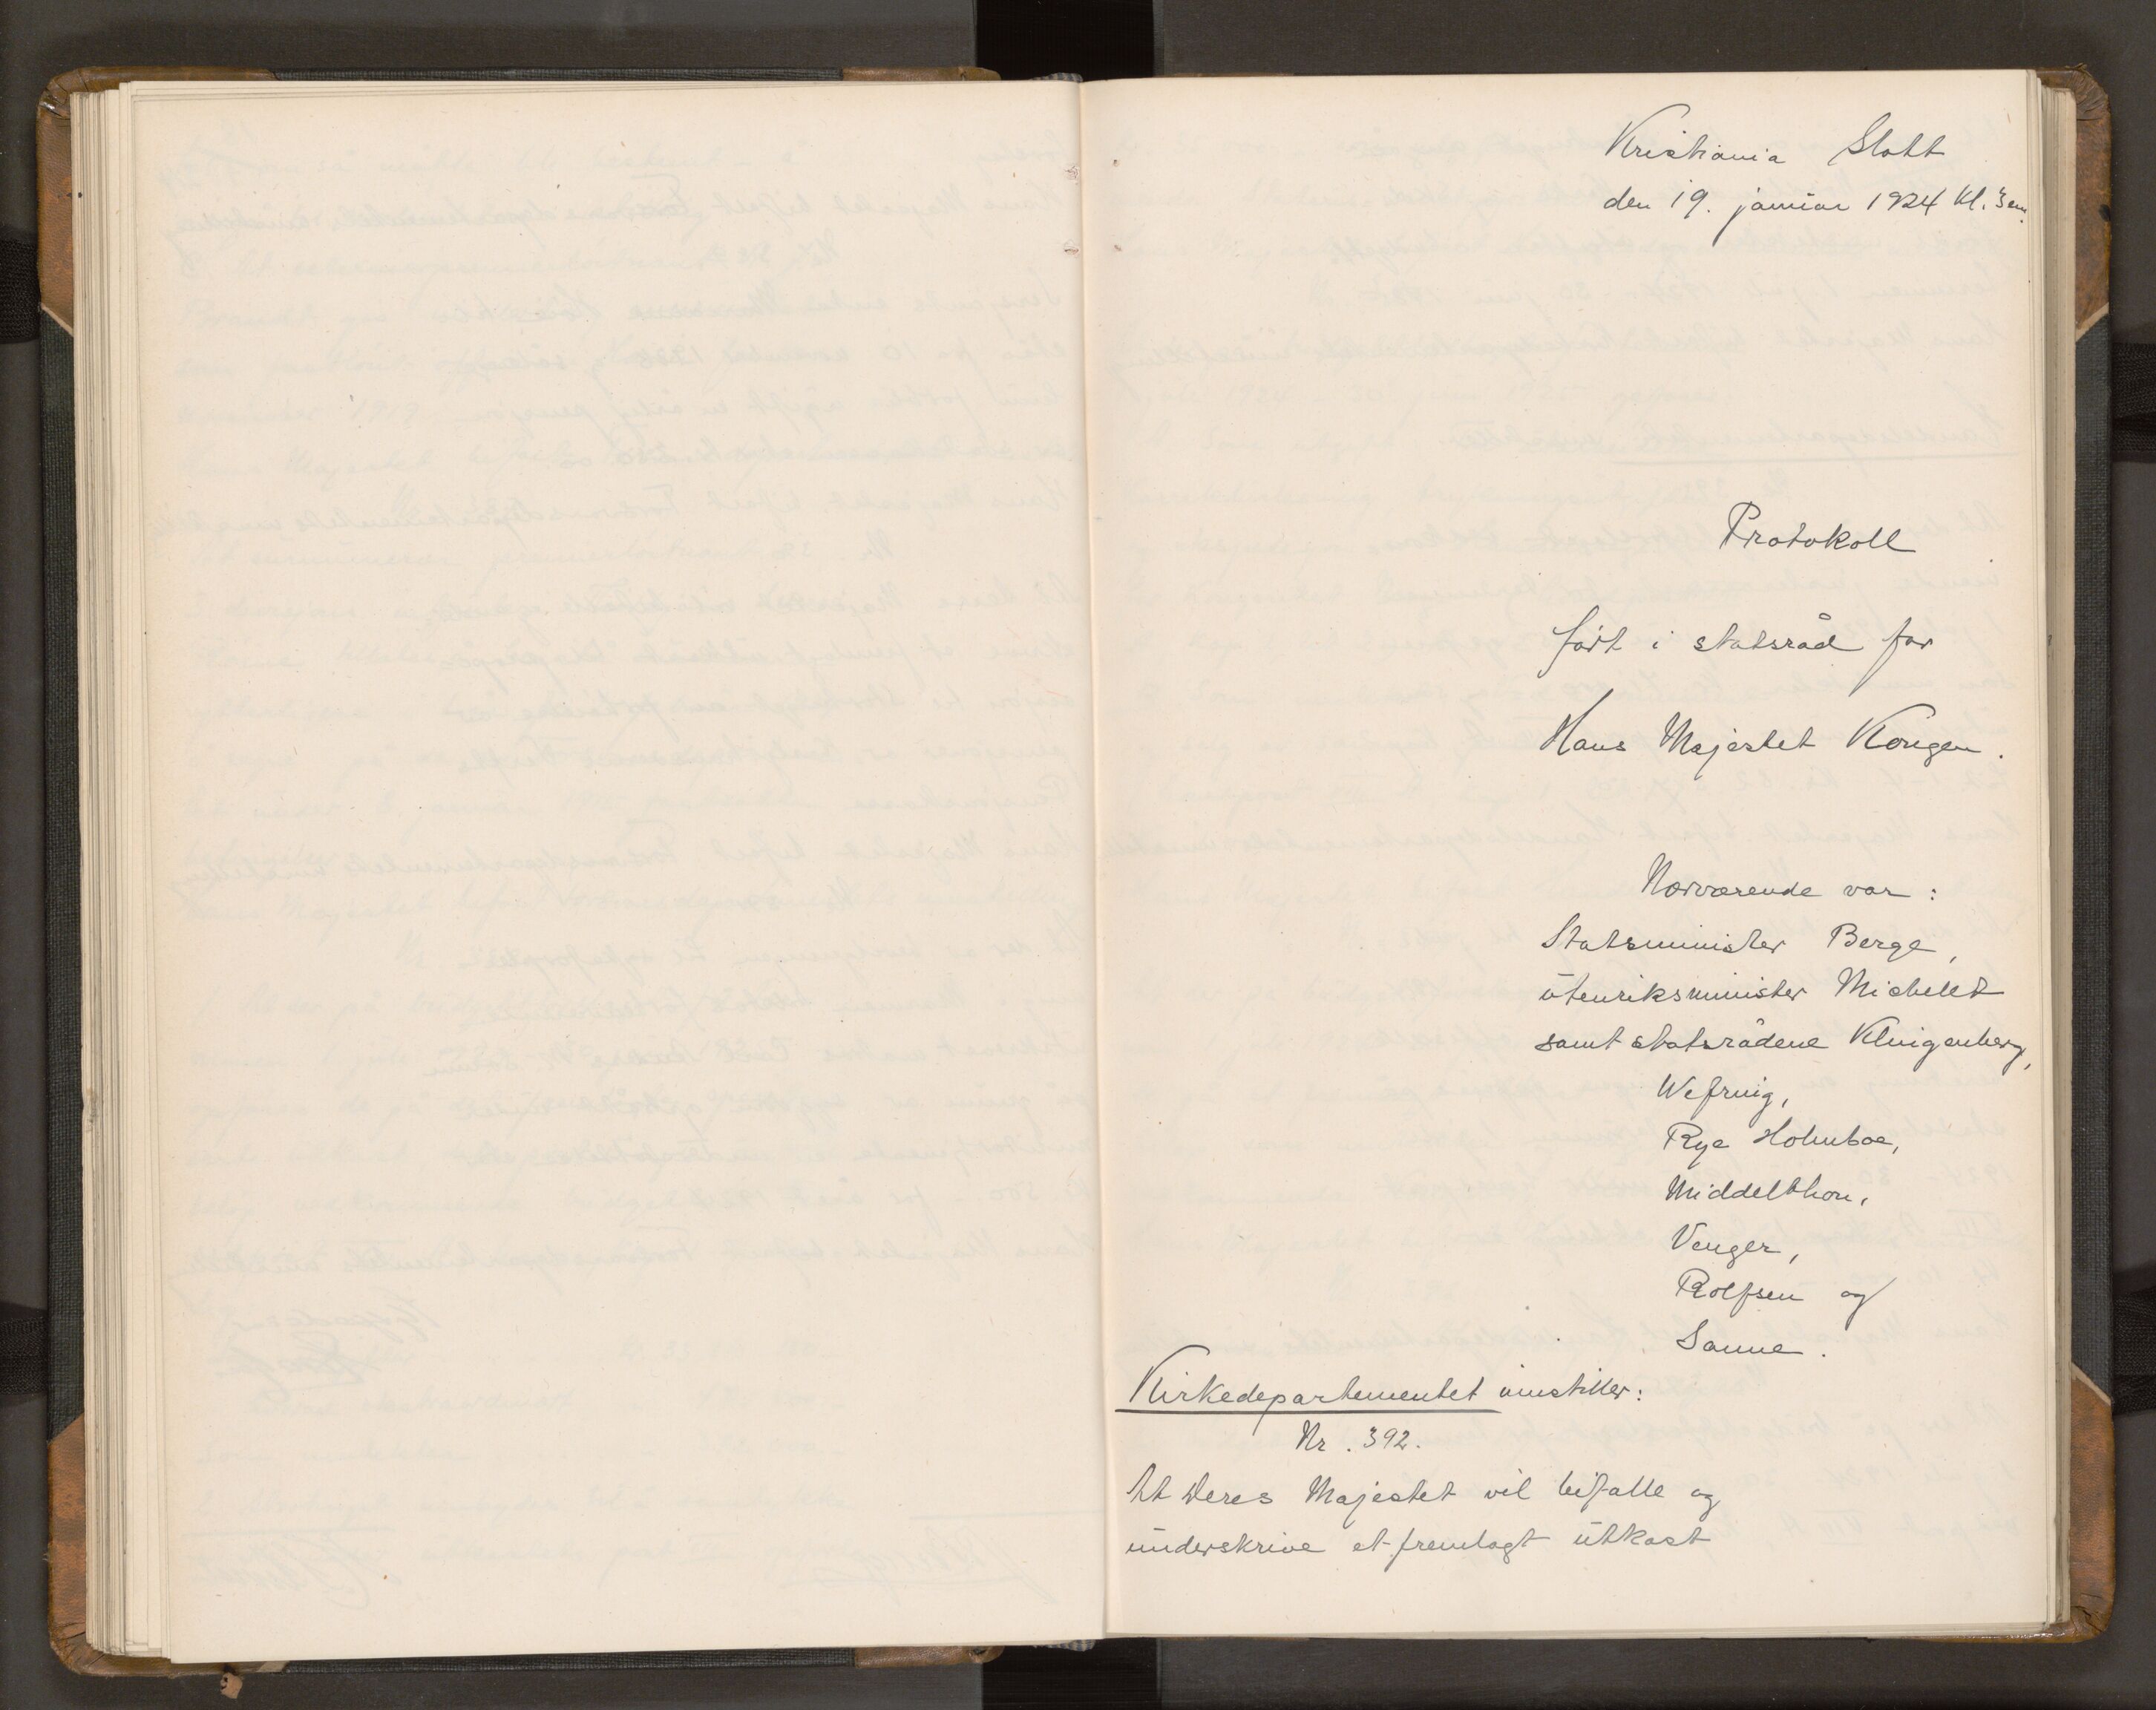 Kristiania Slott
den 19. januar 1924 kl. 3 em.
Protokoll
ført i statsråd for
Hans Majestet Kongen.
Nærværende var:
Statsminister Berge,
utenriksminister Michelet
samt statsrådene Klingenberg,
Wefring,
Rye Holmboe,
Middelthon,
Venger,
Rolfsen og
Sanne.
Kirkedepartementet innstiller:
Nr. 392.
At Deres Majestet vil bifalle og
underskrive et fremlagt utkast